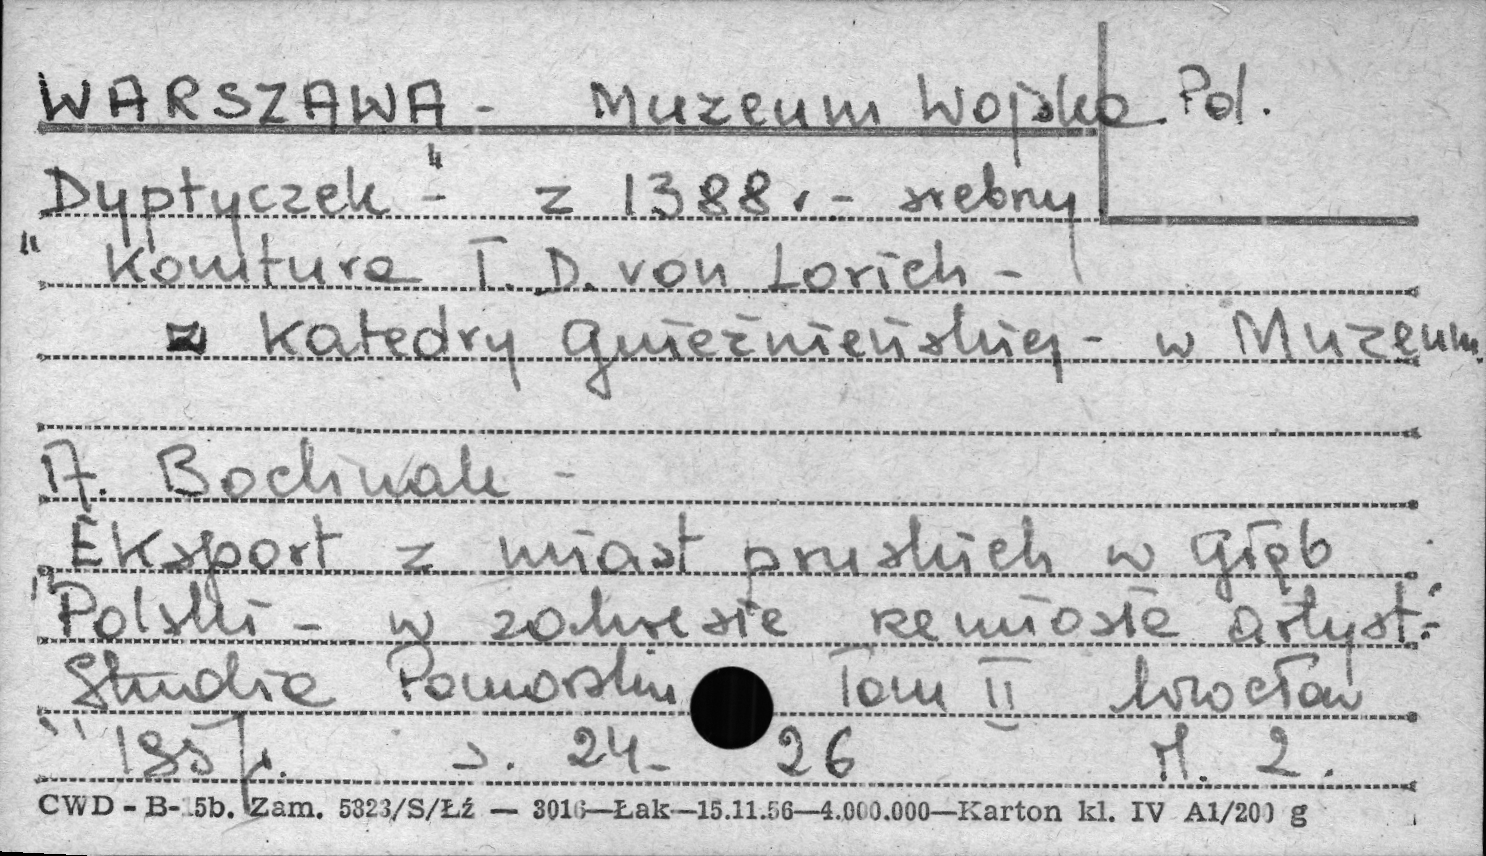 WARSZAWA - Muzeum Wojska Pol.
Dyptyczek" - z 1388 r. - srebny
" Komtura T. D. von Lorich -
z Katedry Gnieźnieńskiej - w Muzeum.
A. Bochnak -
Eksport z miast pruskich w głąb
"Polski - w zakresie rzemiosła artyst." -
Studia Pomorskie Tom II Wrocław
1957 r. s. 24 - 26 il. 2.
CWD - B- 5b. Zam. 5823/S/Łź — 3016—Łak—15.11.56—4.000.000—Karton kl. IV A1/200 g